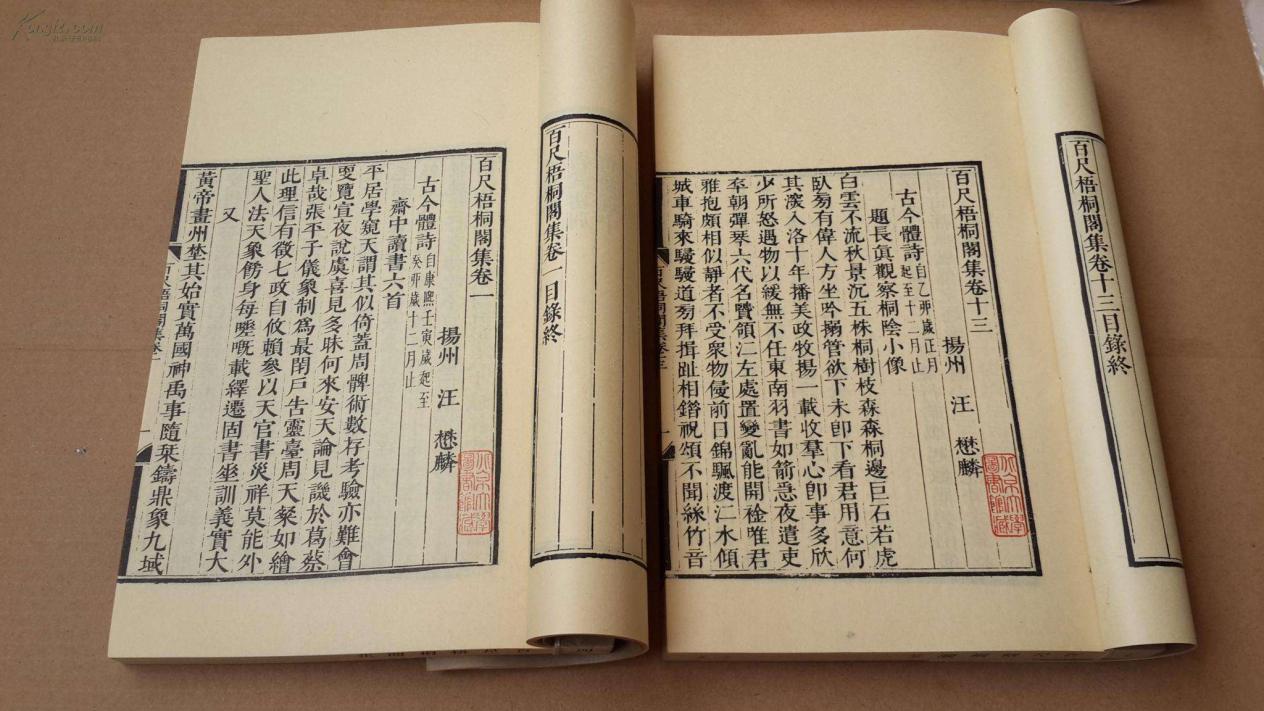 百尺梧桐閣集卷一目錄終
百尺梧桐閣集卷一
揚州 汪 懋麟
北京大學
圖書館藏
古今體詩 自康熙壬寅歲起至
癸卯歲十二月止
齋中讀書六首
平居學窺天謂其似倚蓋周髀術數存考驗亦難會
更覽宣夜說虞喜見多昧何來安天論見譏於葛蔡
卓哉張平子儀象制爲最閉戶告靈臺周天粲如繪
此理信有徵七政自攸賴參以天官書災祥莫能外
聖人法天象飭身每慨載繹遷固書坐訓義實大
又
黃帝畫州埜其始實萬國神禹事隨栞鑄鼎象九域
百尺梧桐閣集卷一
一
百尺梧桐閣集卷十三目錄終
百尺梧桐閣集卷十三
揚州 汪 懋麟
北京大學
圖書館藏
古今體詩 自乙卯歲正月
起至十二月止
題長眞觀察桐陰小像
白雲不流秋景沉五株桐樹枝森森桐邊巨石若虎
臥旁有偉人方坐吟搦管欲下未卽下看君用意何
其深入洛十年播美政牧揚一載收羣心卽事多欣
少所怒遇物以緩無不任東南羽書如箭急夜遣吏
卒朝彈琴六代名賢領江左處置變亂能開襟唯君
雅抱頗相似靜者不受衆物侵前日錦颿渡江水傾
城車騎來駸駸道旁拜揖趾相錯祝頌不聞絲竹音
百尺梧桐閣集卷十三
一
Kongfz.com